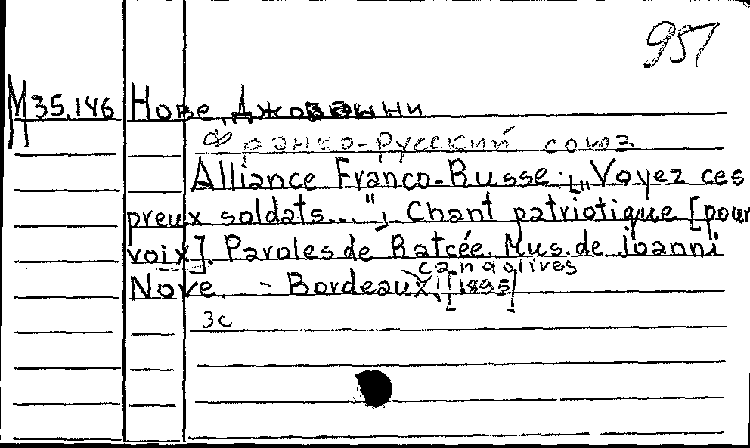 957
М 35.146 Нове, Джованни
Франко-русский союз
Alliance Franco-Russe. [„Voyez ces
preux soldats..."]. Chant patriotique [pour
voix]. Paroles de Ratcée. Mus. de Joanni
Nove. - Bordeaux, [1895]
3с